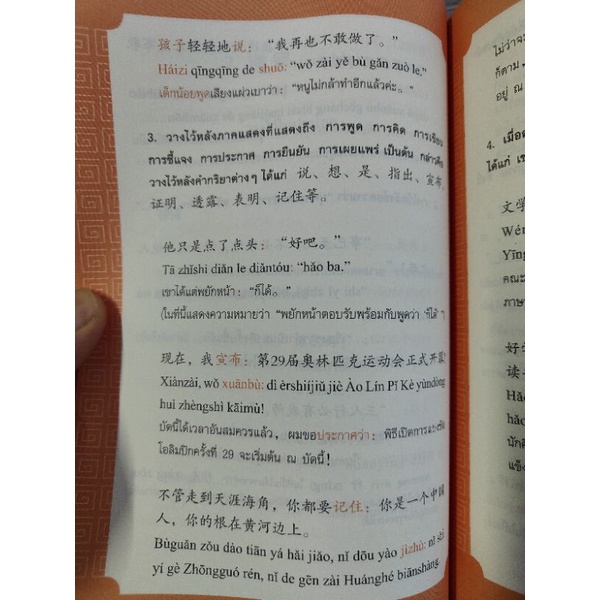 孩子轻轻地说：“我再也不敢做了。”
Háizi qīngqīng de shuō: “wǒ zài yě bù gǎn zuò le.”
เด็กน้อยพูดเสียงแผ่วเบาว่า: “หนูไม่กล้าทำอีกแล้วค่ะ.”
3. วางไว้หลังภาคแสดงที่แสดงถึง การพูด การคิด การเขียน
การชี้แจง การประกาศ การยืนยัน การเผยแพร่ เป็นต้น กล่าวคือ
วางไว้หลังคำกริยาต่างๆ ได้แก่ 说、想、是、指出、宣布、
证明、透露、表明、记住等。
他只是点了点头：“好吧。”
Tā zhǐshì diǎn le diǎntóu: “hǎo ba.”
เขาได้แต่พยักหน้า: “ก็ได้。”
(ในที่นี้แสดงความหมายว่า “พยักหน้าตอบรับพร้อมกับพูดว่า ‘ก็ได้’”
现在，我宣布：第29届奥林匹克运动会正式开幕
Xiànzài, wǒ xuānbù: dì èrshíjiǔ jiè Ào Lín Pǐ Kè yùndòng
huì zhèngshì kāimù!
บัดนี้ได้เวลาอันสมควรแล้ว, ผมขอประกาศว่า: พิธีเปิดการแข่งขัน
โอลิมปิกครั้งที่ 29 จะเริ่มต้น ณ บัดนี้!
不管走到天涯海角，你都要记住：你是一个中国
人，你的根在黄河边上。
Bùguǎn zǒu dào tiān yá hǎi jiǎo, nǐ dōu yào jìzhù: nǐ shì
yí gè Zhōngguó rén, nǐ de gēn zài Huánghé biānshàng.
ไม่ว่าจะ
ก็ตาม,
อยู่ ณ
4. เมื่อ
ได้แก่ เช
文学
Wén
Yīng
คณะ
ภาษา
好
读
Hǎo
hǎo
นักศึ
แข็ง